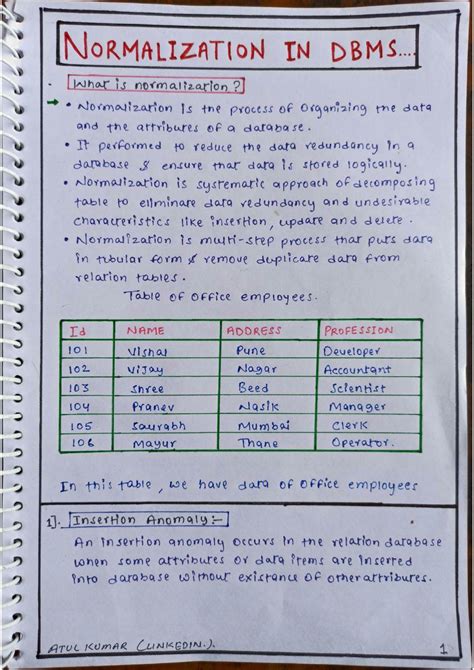 NORMALIZATION IN DBMS....
What is normalization?
• Normalization is the process of organizing the data
and the attributes of a database.
• It performed to reduce the data redundancy in a
database & ensure that data is stored logically.
• Normalization is systematic approach of decomposing
table to eliminate data redundancy and undesirable
characteristics like insertion, update and delete.
• Normalization is multi-step process that puts data
in tubular form & remove duplicate data from
relation tables.
Table of office employees.
Id NAME ADDRESS PROFESSION
101 Vishal Pune Developer
102 Vijay Nagar Accountant
103 Shree Beed Scientist
104 Pranev Nasik Manager
105 Saurabh Mumbai Clerk
106 Mayur Thane Operator.
In this table, we have data of office employees
1]. Insertion Anomaly:-
An insertion anomaly occurs in the relation database
when some attributes or data items are inserted
into database without existance of other attributes.
ATUL KUMAR (LINKEDIN.). 1